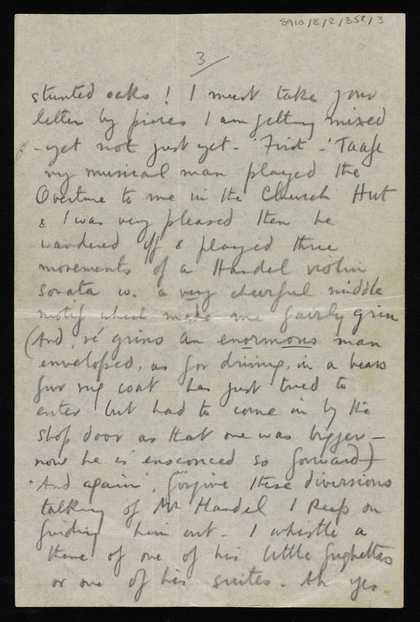 8910/8/2/358/3
3
stunted oaks! I must take your
letter by pieces I am getting mixed
- yet not just yet - 'First -' Taafe
my musical man played the
Overture to me in the Church Hut
& I was very pleased then he
wandered off & played three
movements of a Handel violin
Sonata w. a very cheerful middle
motif which made me fairly grin
(And, 're' grins an enormous man
enveloped, as for driving, in a bears
fur rug coat has just tried to
enter but had to come in by the
shop door as that one was bigger -
now he is ensconced so forward)
'And again', forgive these diversions
talking of Mr Handel I keep on
finding him out. I whistle a
theme of one of his little fughettas
or one of his suites. Ah yes